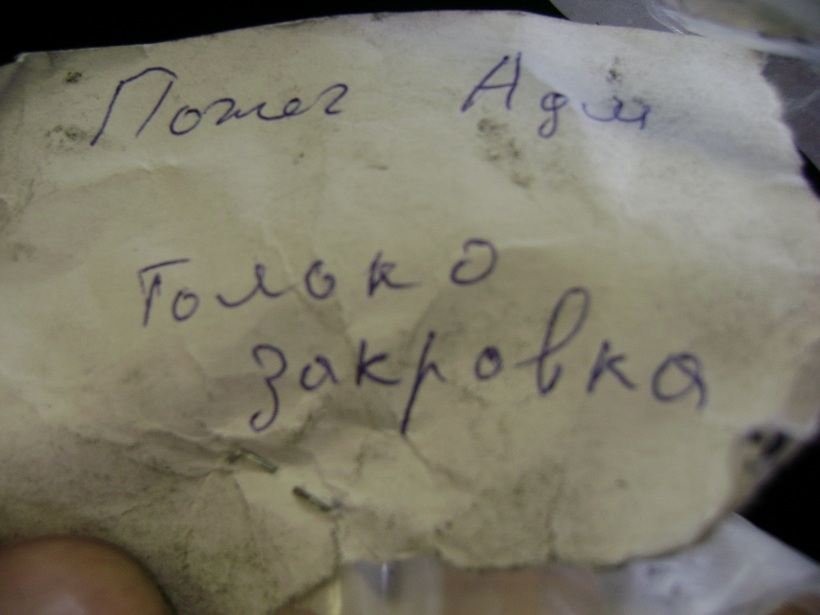 Помег Адм
Толоко
закровка